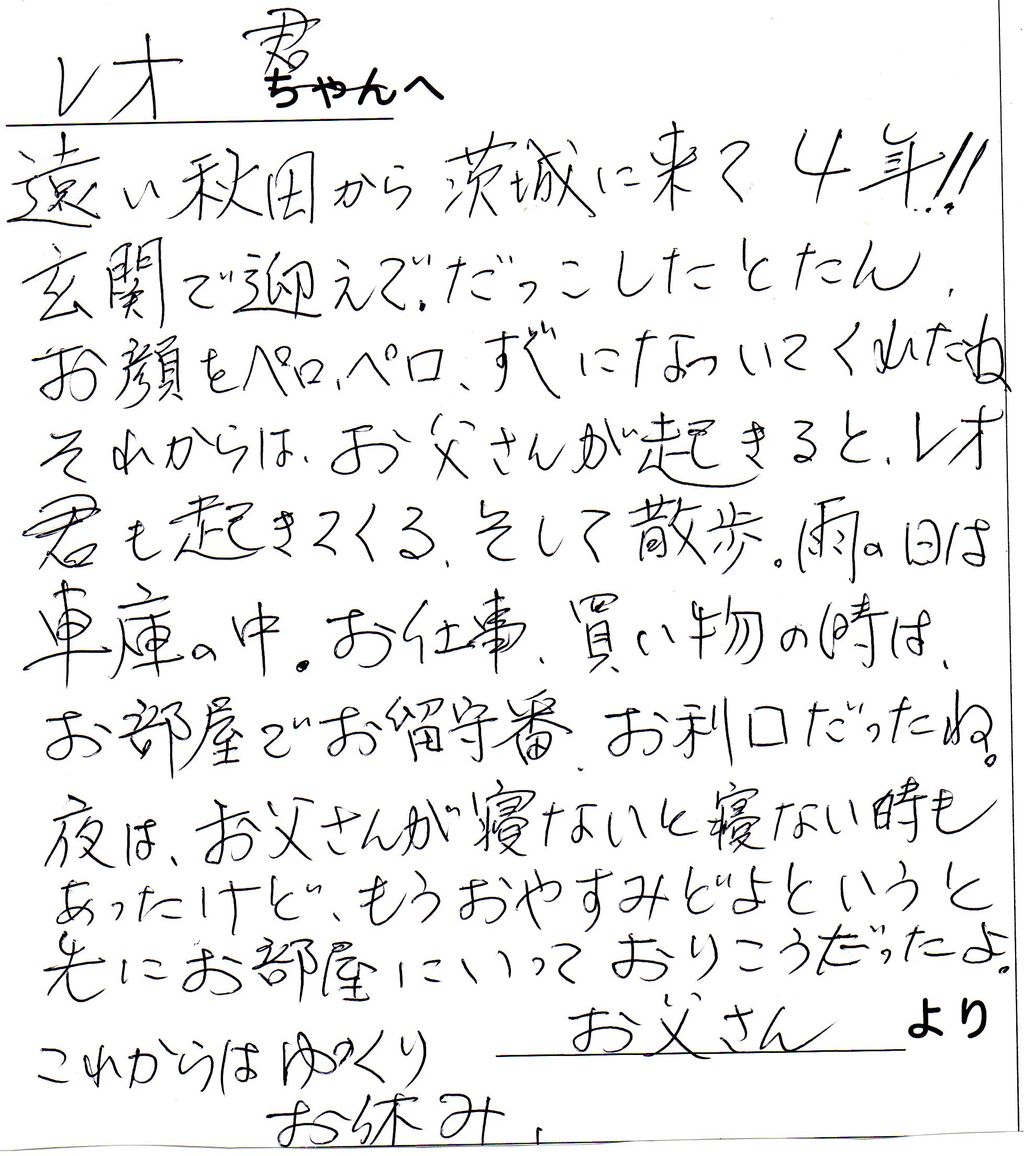 レオ 君
ちゃんへ
遠い秋田から茨城に来て4年!!
玄関で迎えて.だっこしたとたん、
お顔をペロ、ペロ、すぐになついてくれたね
それからは、お父さんが起きると、レオ
君も起きてくる、そして散歩。雨の日は
車庫の中。お仕事、買い物の時は、
お部屋でお留守番、お利口だったね。
夜は、お父さんが寝ないと寝ない時も
あったけど、もうおやすみだよというと
先にお部屋にいっておりこうだったよ。
お父さん より
これからはゆっくり
お休み、